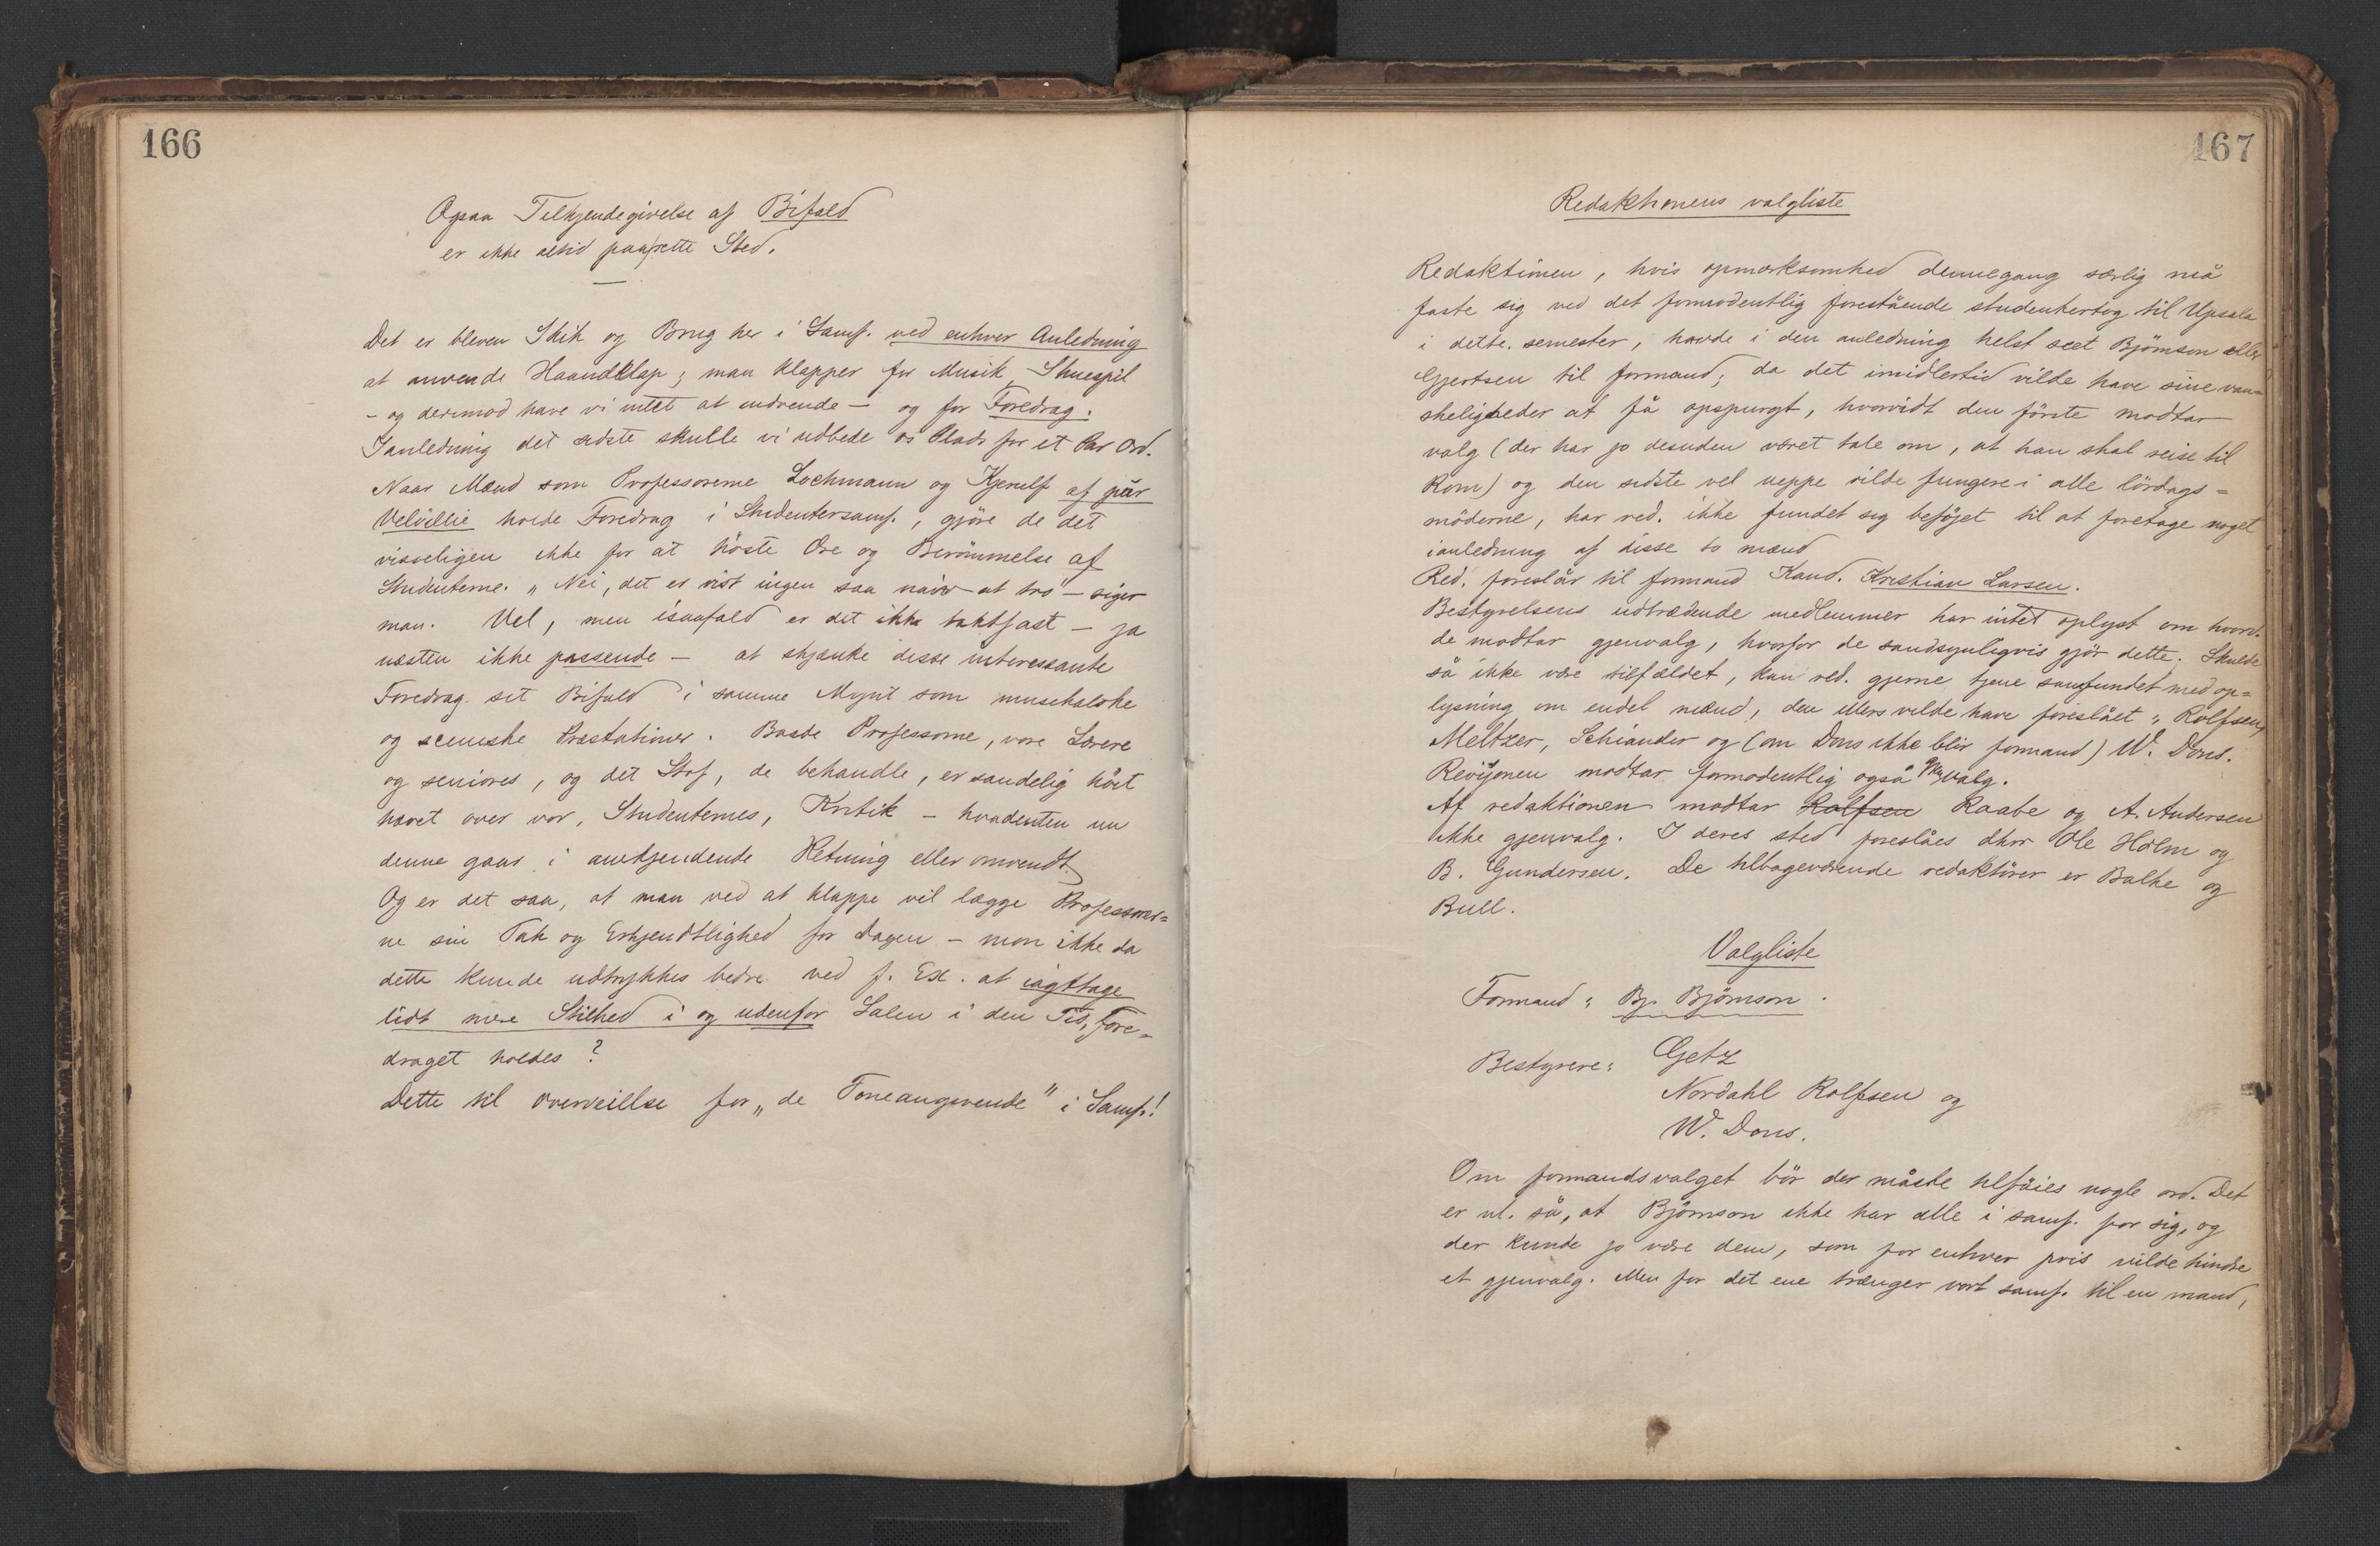 166
Ogsaa Tilkjendegivelse af Bifald
er ikke altid paa rette Sted.
Det er bleven Skik og Brug her i Samf. ved enhver Anledning
at anvende Haandklap; man klapper for Musik, Skuespil
- og derimod have vi intet at indvende - og for Foredrag.
I anledning det sidste skulle vi udbede os Plads for et Par Ord.
Naar Mænd som Professorerne Lochmann og Kjerulf af pür
Velvillie holde Foredrag i Studentersamf., gjöre de det
visseligen ikke for at höste Ære og Berömmelse af
Studenterne. „Nei, det er vist ingen saa naiv at tro" - siger
man. Vel, men isaafald er det ikke taktfast - ja
næsten ikke passende - at skjænke disse interessante
Foredrag sit Bifald i samme Mynt som musikalske
og sceniske Præstationer. Baade Professorne, vore Lærere
og seniores, og det Stof, de behandle, er sandelig höit
hævet over vor, Studenternes, Kritik - hvadenten nu
denne gaar i anerkjendende Retning eller omvendt.
Og er det saa, at man ved at klappe vil lægge Professorer=
ne sin Tak og Erkjendtlighed for Dagen - mon ikke da
dette kunde udtrykkes bedre ved f. Ex. at iagttage
lidt mere Stilhed i og udenfor Salen i den Tid, Fore-
draget holdes?
Dette til Overveielse for „de Toneangivende" i Samf.!
167
Redaktionens valgliste
Redaktionen, hvis opmærksomhed dennegang særlig må
fæste sig ved det formodentlig forestående studentertog til Upsala
i dette semester, havde i den anledning helst seet Björnson eller
Gjertsen til formand; da det imidlertid vilde have sine van=
skeligheder at få opspurgt, hvorvidt den förste modtar
valg (der har jo desuden været tale om, at han skal reise til
Rom) og den sidste vel neppe vilde fungere i alle lördags=
möderne, har red. ikke fundet sig beföjet til at foretage noget
ianledning af disse to mænd
Red. foreslår til formand Kand. Kristian Larsen.
Bestyrelsens udtrædende medlemmer har intet oplyst om hvorv.
de modtar gjenvalg, hvorfor de sandsynligvis gjör dette. Skulde
så ikke være tilfældet, kan red. gjerne tjene samfundet med op=
lysning om endel mænd, den ellers vilde have foreslået: Rolfsen,
Meltzer, Schiander og (om Dons ikke blir formand) W. Dons.
Revisjonen modtar formodentlig også valg.
Af redaktionen modtar Rolfsen Raabe og A. Andersen
ikke gjenvalg. I deres sted foreslåes dhrr Ole Holm og
B. Gundersen. De tilbageværende redaktörer er Balke og
Bull.
Valgliste
Formand: Bj. Björnson.
Bestyrere: Getz
Nordahl Rolfsen og
W. Dons.
Om formandsvalget bör der måske tilföies nogle ord. Det
er nl. så, at Björnson ikke har alle i samf. for sig, og
der kunde jo være dem, som for enhver pris vilde hindre
et gjenvalg. Men for det ene trænger vort samf. til en mand,